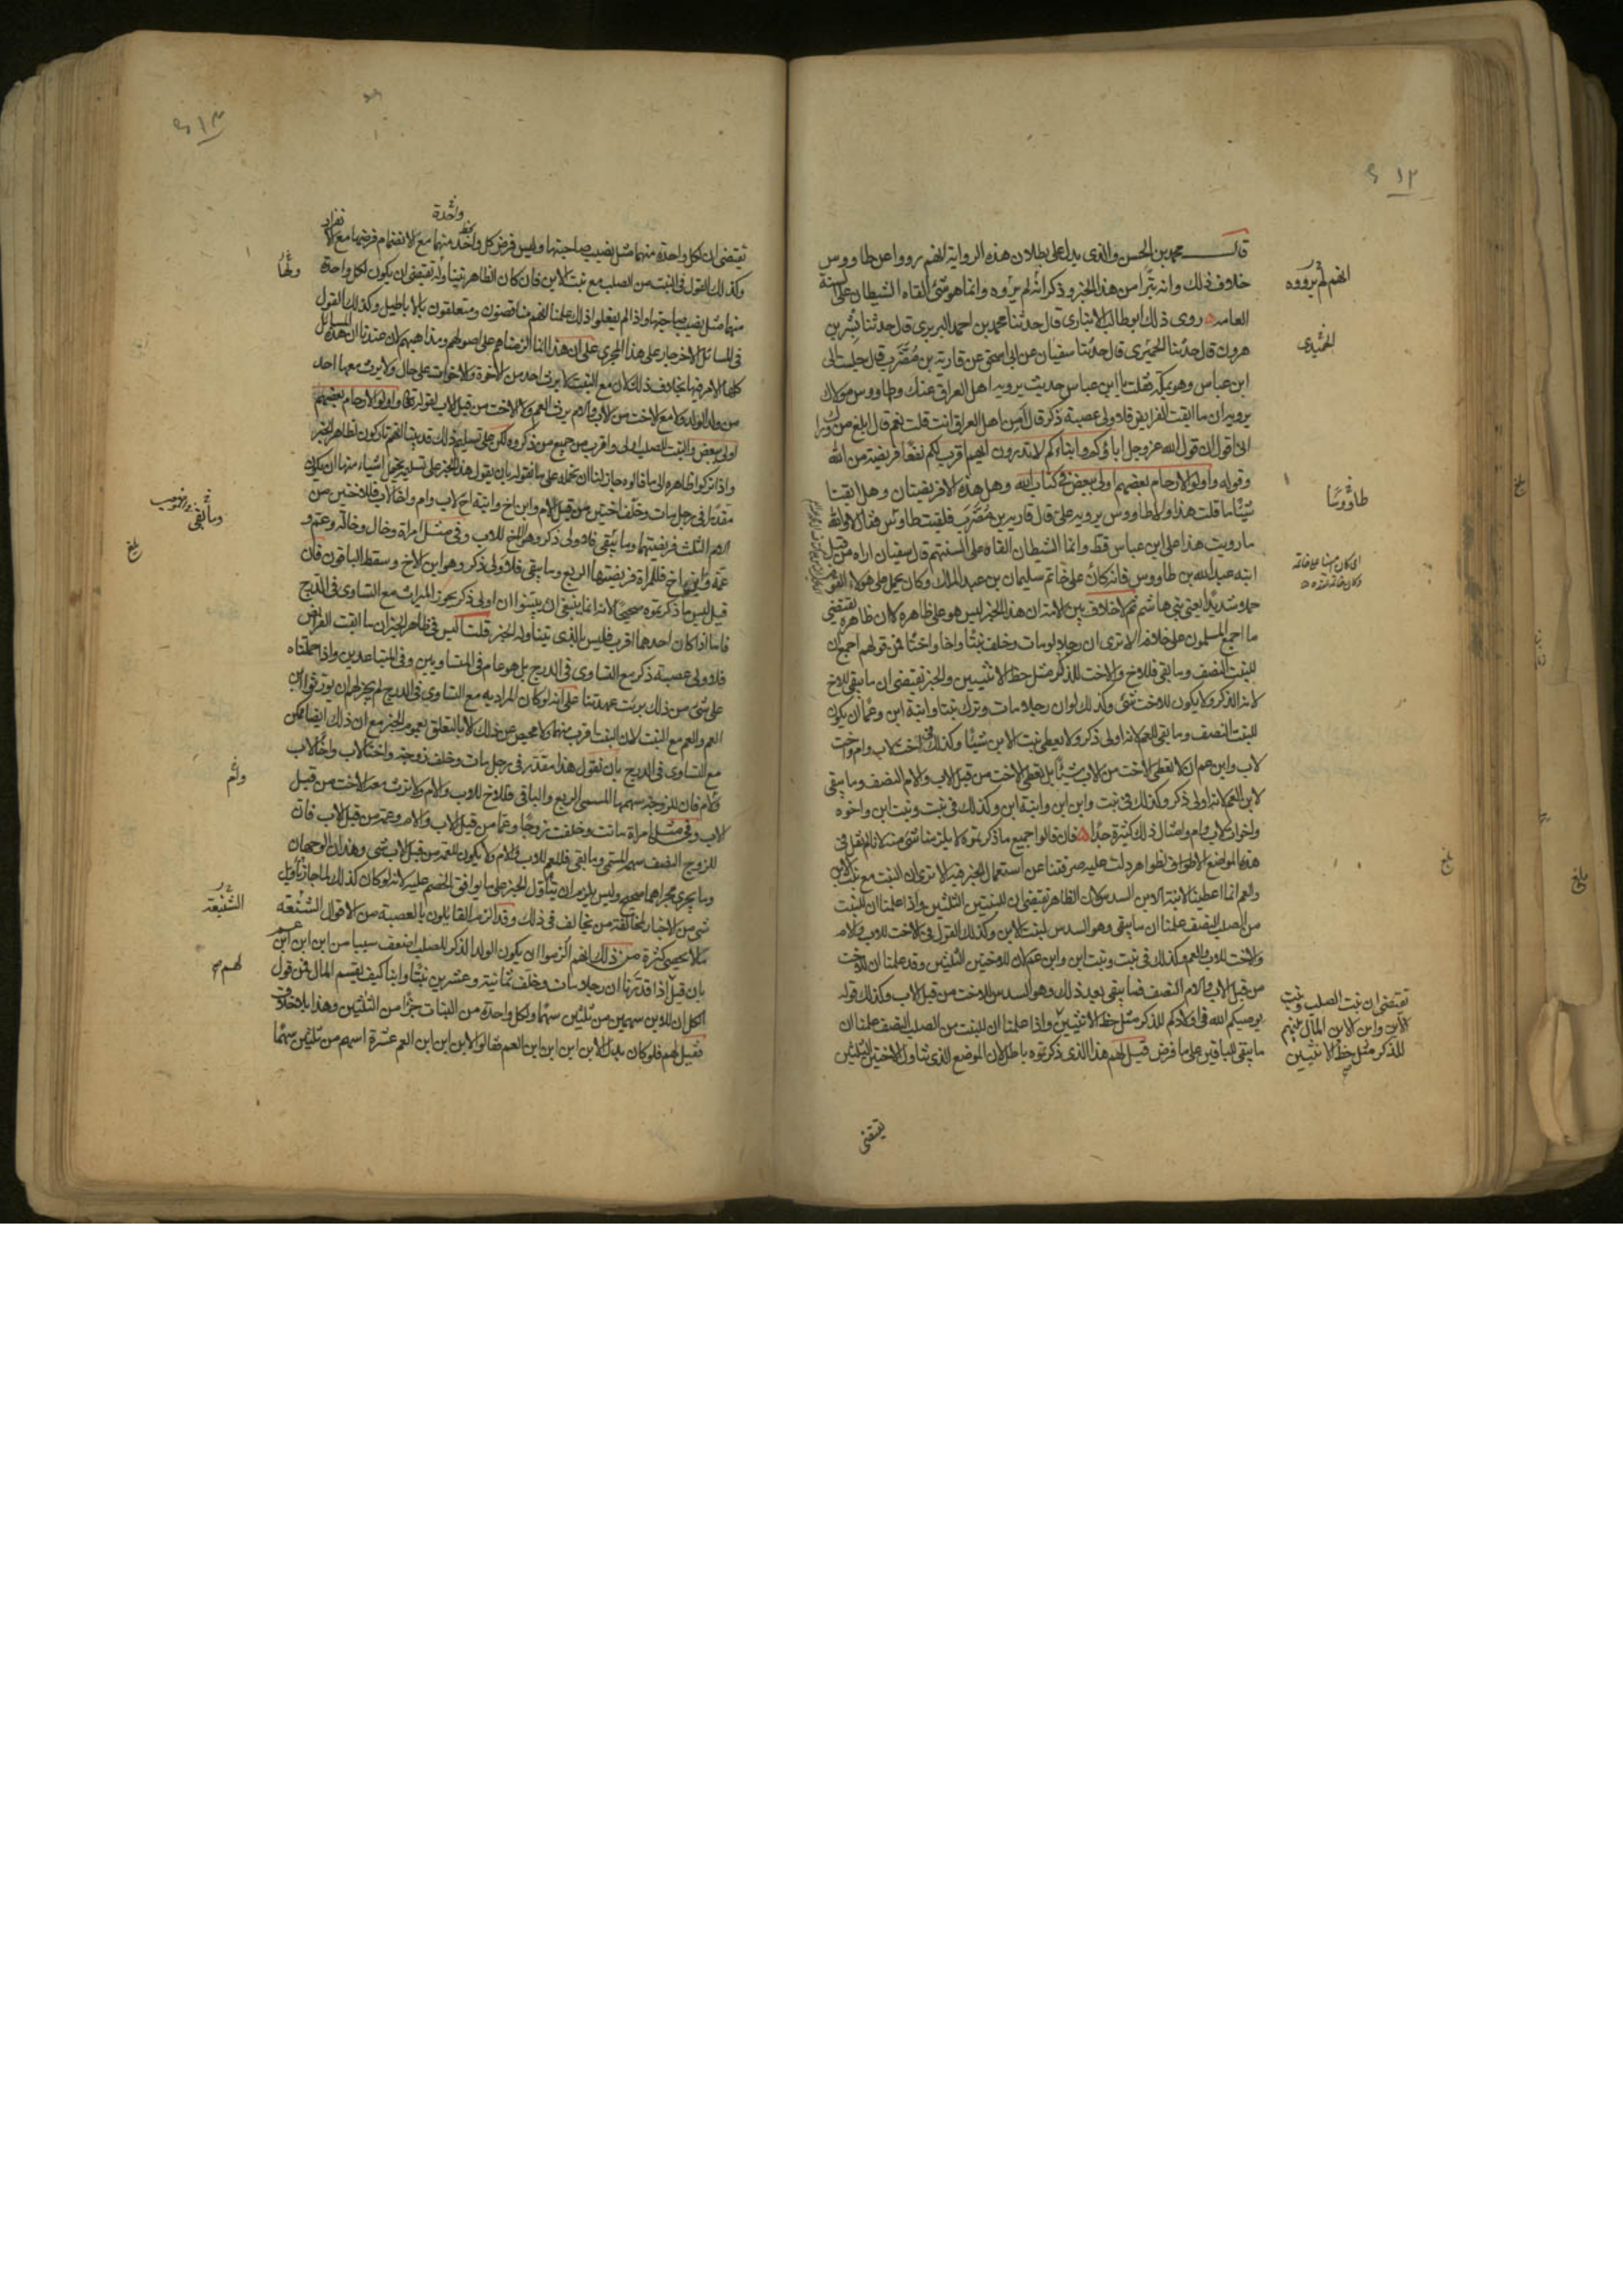 ٤١٢
قال محمد بن الحسن والذى يدل على بطلان هذه الرواية انهم رووا عن طاووس
خلاف ذلك وانه تبرأ من هذا الخبر وذكر انه لم يروه وانما هو شئ القاه الشيطان على السنة
العامه روى ذلك ابو طالب الانبارى قال حدثنا محمد بن احمد البربرى قال حدثنا بشر بن
هرون قال حدثنا الحميرى قال حدثنا سفيان عن ابى اسحق عن قاربة بن مضرب قال جلست الى
ابن عباس وهو بمكة فقلت يا ابن عباس حديث يرويه اهل العراق عنك وطاووس مولاك
يرويه ان ما ابقت الفرايض فلاولى عصبة ذكر قال أمن اهل العراق انت قلت نعم قال ابلغ من وراك
انى اقول ان قول الله عز وجل اباؤكم وابناءكم لا تدرون ايهم اقرب لكم نفعا فريضة من الله
وقوله واولو الارحام بعضهم اولى ببعض فى كتاب الله وهل هذه الا فريضتان وهل ابقتا
شيئا ما قلت هذا ولا طاووس يرويه على قال قاربة بن مضرب فلقيت طاوس فقال لا والله
ما رويت هذا على ابن عباس قط وانما الشيطان القاه على السنتهم قال سفيان اراه من قبل
ابنه عبد الله بن طاووس فانه كان على خاتم سليمان بن عبد الملك وكان يحمل على هولاء القوم
حملا شديدا يعنى بنى هاشم ثم لا خلاف بين الامة ان هذا الخبر ليس هو على ظاهره لان ظاهره يقتضى
ما اجمع المسلمون على خلافه الا ترى ان رجلا لو مات وخلف بنتا واخا واختا فمن قولهم اجمع ان
للبنت النصف وما بقى فللاخ والاخت للذكر مثل حظ الانثيين والخبر يقتضى ان ما بقى للاخ
لانه الذكر ولا يكون للاخت شئ وكذلك لو ان رجلا مات وترك بنتا وابنة ابن وعما ان يكون
للبنت النصف وما بقى للعم لانه اولى ذكر ولا يعطى بنت الابن شيئا وكذلك فى اخت لاب وام واخت
لاب وابن عم ان لا تعطى الاخت من الاب شيئا بل تعطى الاخت من قبل الاب والام النصف وما بقى
لابن العم لانه اولى ذكر وكذلك فى بنت وابن ابن وابنة ابن وكذلك فى بنت وبنت ابن واخوة
واخوات لاب وام وامثال ذلك كثيرة جدا فان قالوا جميع ما ذكرتموه لا يلزمنا شئ منه لانا لم نقل فى
هذه المواضع الا لظواهر دلت عليه صرفتنا عن استعمال الخبر فيه الا ترى ان البنت مع بنت الابن
والعم انما اعطينا لابنة الابن السدس لان الظاهر يقتضى ان للبنتين الثلثين واذا علمنا ان للبنت
من الصلب النصف علمنا ان ما يبقى وهو السدس لبنت الابن وكذلك القول فى الاخت للاب والام
والاخت للاب والعم وكذلك فى بنت وبنت ابن وابن عم لان للاختين الثلثين وقد علمنا ان للاخت
من قبل الاب والام النصف فما يبقى بعد ذلك وهو السدس للاخت من قبل الاب وكذلك قوله
يوصيكم الله فى اولادكم للذكر مثل حظ الانثيين واذا علمنا ان للبنت من الصلب النصف علمنا ان
ما يبقى للباقين على ما فرض قيل لهم هذا الذى ذكرتموه باطل لان الموضع الذى تناول الاختين الثلثين
تقتضى
انهم لم يرووه
الحميدى
طاووسا
تقتضى ان بنت الصلب وبنت
الابن وابن الابن المال بينهم
للذكر مثل حظ الانثيين
بلغ
بلغ
بلغ
٤١٣
واحدة
تقتضى ان لكل واحدة منهما مثل نصيب صاحبتها وليس فرض كل واحد منهما مع الانضمام فرضها مع الانفراد
وكذلك القول فى البنت من الصلب مع بنت الابن فان كان الظاهر تناوله تقتضى ان يكون لكل واحدة
منهما مثل نصيب صاحبتها واذا لم يفعلوا ذلك علمنا انهم مناقضون ومتعلقون بالاباطيل وكذلك القول
فى المسائل الاخر جار على هذا المجرى على ان هذا اننا الزمناهم على اصولهم ومذاهبهم لان عندنا ان هذه المسائل
كلها الامر فيها بخلاف ذلك لان مع البنت لا يرث احد من الاخوة والاخوات على حال ولا يرث معها احد
من ولد الولد ولا مع الاخت من الاب والام يرث العم ولا الاخت من قبل الاب لقوله تعالى واولو الارحام بعضهم
اولى ببعض والبنت للصلب اولى واقرب من جميع من ذكروه ولكن على تسليم ذلك قد بينا انهم تاركون لظاهر الخبر
واذا تركوا ظاهره الى ما قالوه جاز لنا ان نحمله على ما نقوله بان يقول هذا الخبر على تسليمه يحتمل اشياء منها ان يكون
مقدرا فى رجل مات وخلف اختين من قبل الام وابن اخ وابنة اخ لاب وام واخا لاب فللاختين من
الام الثلث فريضتهما وما بقى فلاولى ذكر وهو الاخ للاب وفى مثل امراة وخال وخالة وعم و
عمة وابن اخ فللمراة فريضتها الربع وما يبقى فلاولى ذكر وهو ابن الاخ وسقط الباقون فان
قيل ليس ما ذكرتموه صحيحا لانه انما ينبغى ان يبينوا ان اولى ذكر يحوز الميراث مع التساوى فى الدرج
فاما اذا كان احدهما اقرب فليس بالذى تيناوله الخبر قلت اليس فى ظاهر الخبر ان ما ابقت الفرايض
فلاولى عصبة ذكر مع التساوى فى الدرج بل هو عام فى المتساويين وفى المتباعدين واذا حملناه
على شئ من ذلك برئت عهدتنا على انه لو كان المراد به مع التساوى فى الدرج لم يجز لهم ان يورثوا ابن
العم والعم مع البنت لان البنت اقرب منهما ولا محيص عن ذلك الا بالتعلق بعموم الخبر مع ان ذلك ايضا ممكن
مع التساوى فى الدرج بان نقول هذا مقدر فى رجل مات وخلف زوجة واختا لاب واخا لاب
وام فان للزوجة سهمها المسمى الربع والباقى فللاخ للاب والام ولا ترث معه الاخت من قبل
الاب وفى مثل امراة ماتت وخلفت زوجا وعما من قبل الاب والام وعمة من قبل الاب فان
للزوج النصف سهم المسمى وما بقى فللعم للاب والام ولا يكون للعمة من قبل الاب شى وهذان الوجهان
وما يجرى مجراهما صحيح وليس يلزم ان يتاول الخبر على ما يوافق الخصم عليه لانه لو كان كذلك لما جاز تاويل
شى من الاخبار المخالفة من يخالف فى ذلك وقد الزم القايلون بالعصبة من الاقوال الشنعه
ما لا يحصى كثرة من ذلك انهم الزموا ان يكون الولد الذكر للصلب اضعف سببا من ابن ابن ابن عم
بان قيل اذا قدرنا ان رجلا مات وخلف ثمانية وعشرين بنتا وابنا كيف يقسم المال فمن قول
الكل ان للابن سهمين من ثلثين سهما ولكل واحدة من البنات جزا من الثلثين وهذا بلا خلاف
فقيل لهم فلو كان بدل الابن ابن ابن ابن العم فقالوا لابن ابن ابن العم عشرة اسهم من ثلثين سهما
ولها
وما بقى
بلغ
ولم
الشنيعة
لهم